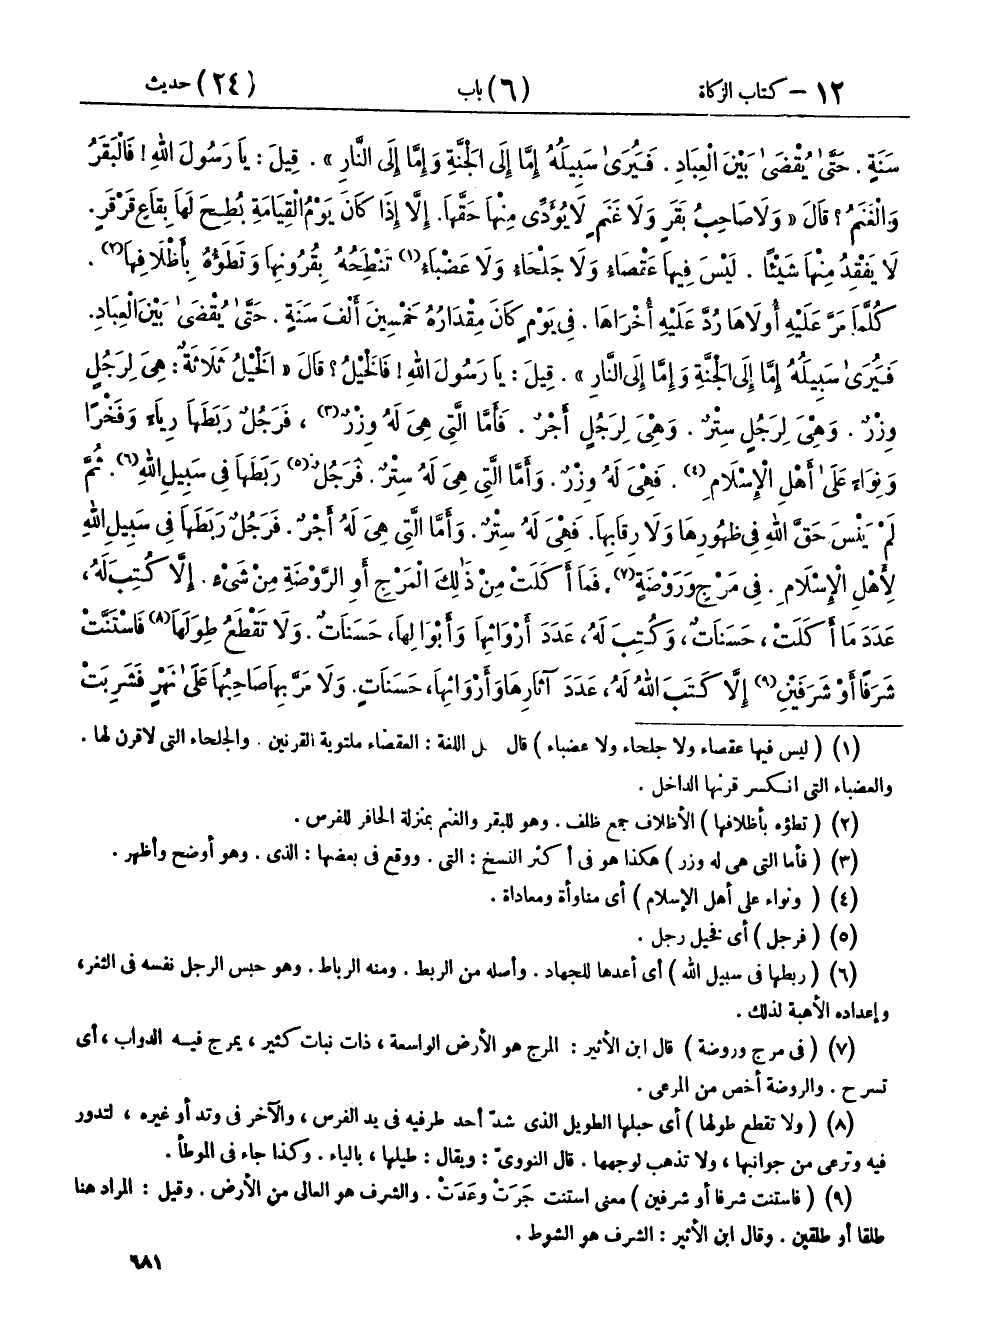 ١٢ - كتاب الزكاة (٦) باب (٢٤) حديث
سَنَةٍ . حَتَّىٰ يُقْضَىٰ بَيْنَ الْعِبَادِ . فَيُرَىٰ سَبِيلُهُ إِمَّا إِلَى الْجَنَّةِ وَإِمَّا إِلَى النَّارِ » . قِيلَ : يَا رَسُولَ اللهِ ! فَالْبَقَرُ
وَالْغَنَمُ ؟ قَالَ « وَلَا صَاحِبُ بَقَرٍ وَلَا غَنَمٍ لَا يُؤَدِّى مِنْهَا حَقَّهَا. إِلَّا إِذَا كَانَ يَوْمُ الْقِيَامَةِ بُطِحَ لَهَا بِقَاعٍ قَرْقَرٍ.
لَا يَفْقِدُ مِنْهَا شَيْئًا . لَيْسَ فِيهَا عَقْصَاءُ وَلَا جَلْحَاءُ وَلَا عَضْبَاءُ (١) تَنْطَحُهُ بِقُرُونِهَا وَتَطَؤُهُ بِأَظْلَافِهَا (٢) .
كُلَّمَا مَرَّ عَلَيْهِ أُولَاهَا رُدَّ عَلَيْهِ أُخْرَاهَا . فِى يَوْمٍ كَانَ مِقْدَارُهُ خَمْسِينَ أَلْفَ سَنَةٍ . حَتَّىٰ يُقْضَىٰ بَيْنَ الْعِبَادِ.
فَيُرَىٰ سَبِيلُهُ إِمَّا إِلَى الْجَنَّةِ وَإِمَّا إِلَى النَّارِ » . قِيلَ : يَا رَسُولَ اللهِ ! فَالْخَيْلُ ؟ قَالَ « الْخَيْلُ ثَلَاثَةٌ : هِىَ لِرَجُلٍ
وِزْرٌ . وَهِىَ لِرَجُلٍ سِتْرٌ . وَهِىَ لِرَجُلٍ أَجْرٌ . فَأَمَّا الَّتِى هِىَ لَهُ وِزْرٌ (٣) ، فَرَجُلٌ رَبَطَهَا رِيَاءً وَفَخْرًا
وَنِوَاءً عَلَىٰ أَهْلِ الْإِسْلَامِ (٤) . فَهِىَ لَهُ وِزْرٌ . وَأَمَّا الَّتِى هِىَ لَهُ سِتْرٌ . فَرَجُلٌ (٥) رَبَطَهَا فِى سَبِيلِ اللهِ (٦) . ثُمَّ
لَمْ يَنْسَ حَقَّ اللهِ فِى ظُهُورِهَا وَلَا رِقَابِهَا. فَهِىَ لَهُ سِتْرٌ. وَأَمَّا الَّتِى هِىَ لَهُ أَجْرٌ. فَرَجُلٌ رَبَطَهَا فِى سَبِيلِ اللهِ
لِأَهْلِ الْإِسْلَامِ . فِى مَرْجٍ وَرَوْضَةٍ (٧) . فَمَا أَكَلَتْ مِنْ ذَٰلِكَ الْمَرْجِ أَوِ الرَّوْضَةِ مِنْ شَىْءٍ . إِلَّا كُتِبَ لَهُ،
عَدَدَ مَا أَكَلَتْ ، حَسَنَاتٌ، وَكُتِبَ لَهُ، عَدَدَ أَرْوَاثِهَا وَأَبْوَالِهَا، حَسَنَاتٌ . وَلَا تَقْطَعُ طِوَلَهَا (٨) فَاسْتَنَّتْ
شَرَفًا أَوْ شَرَفَيْنِ (٩) إِلَّا كَتَبَ اللهُ لَهُ، عَدَدَ آثَارِهَا وَأَرْوَاثِهَا، حَسَنَاتٍ. وَلَا مَرَّ بِهَا صَاحِبُهَا عَلَىٰ نَهْرٍ فَشَرِبَتْ
(١) ( ليس فيها عقصاء ولا جلحاء ولا عضباء ) قال ل اللغة : العقصاء ملتوية القرنين . والجلحاء التى لا قرن لها .
والعضباء التى انكسر قرنها الداخل .
(٢) ( تطؤه بأظلافها ) الأظلاف جمع ظلف . وهو للبقر والغنم بمنزلة الحافر للفرس .
(٣) ( فأما التى هى له وزر ) هكذا هو فى أكثر النسخ : التى . ووقع فى بعضها : الذى . وهو أوضح وأظهر .
(٤) ( ونواء على أهل الإسلام ) أى مناوأة ومعاداة .
(٥) ( فرجل ) أى فخيل رجل .
(٦) ( ربطها فى سبيل الله ) أى أعدها للجهاد . وأصله من الربط . ومنه الرباط . وهو حبس الرجل نفسه فى الثغر،
وإعداده الأهبة لذلك .
(٧) ( فى مرج وروضة ) قال ابن الأثير : المرج هو الأرض الواسعة ، ذات نبات كثير ، يمرج فيه الدواب ، أى
تسرح . والروضة أخص من المرعى .
(٨) ( ولا تقطع طولها ) أى حبلها الطويل الذى شدّ أحد طرفيه فى يد الفرس ، والآخر فى وتد أو غيره ، لتدور
فيه وترعى من جوانبها ، ولا تذهب لوجهها . قال النووىّ : ويقال : طيلها ، بالياء . وكذا جاء فى الموطأ .
(٩) ( فاستنت شرفا أو شرفين ) معنى استنت جَرَتْ وعَدَتْ . والشرف هو العالى من الأرض . وقيل : المراد هنا
طلقا أو طلقين . وقال ابن الأثير : الشرف هو الشوط .
٦٨١